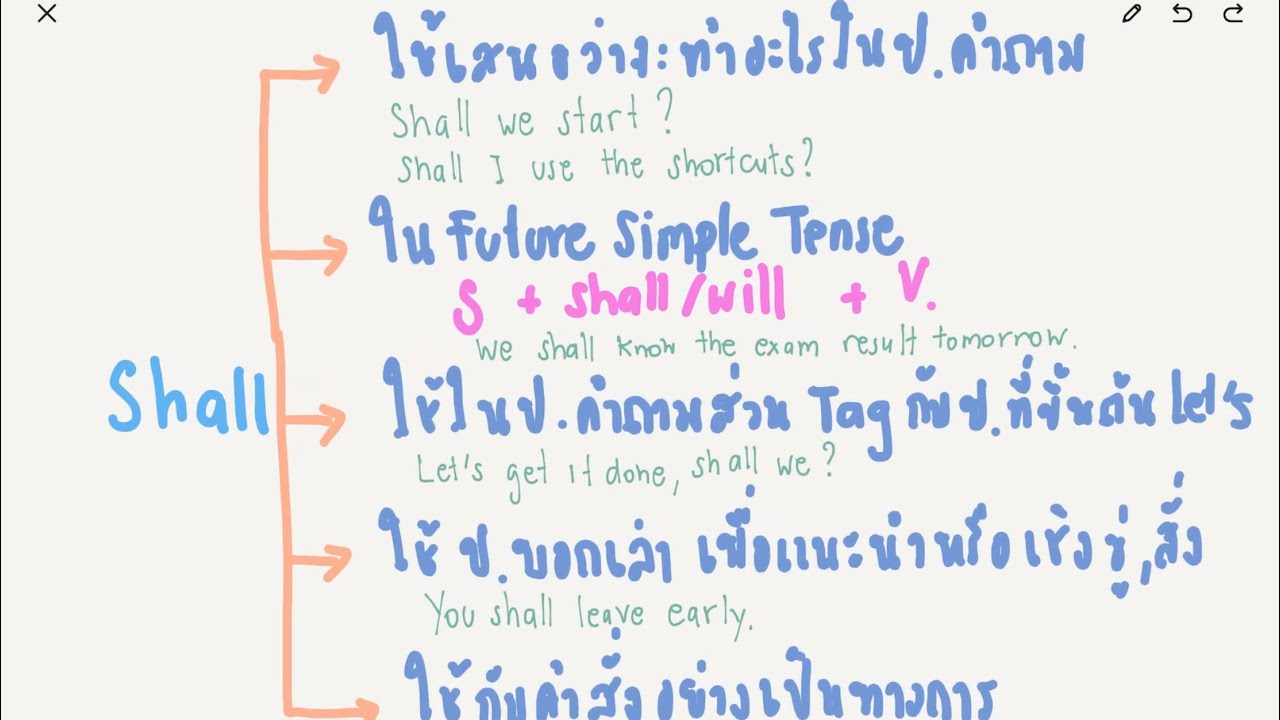 ใช้เสนอว่าจะทำอะไรในป.คำถาม
Shall we start?
Shall I use the shortcuts?
ใน Future Simple Tense
S + shall/will + V.
We shall know the exam result tomorrow.
Shall
ใช้ในป.คำถามส่วน Tag กับป.ที่ขึ้นต้น Let's
Let's get it done, shall we?
ใช้ ป.บอกเล่า เพื่อแนะนำหรือเชิงขู่,สั่ง
You shall leave early.
ใช้กับคำสั่งอย่างเป็นทางการ